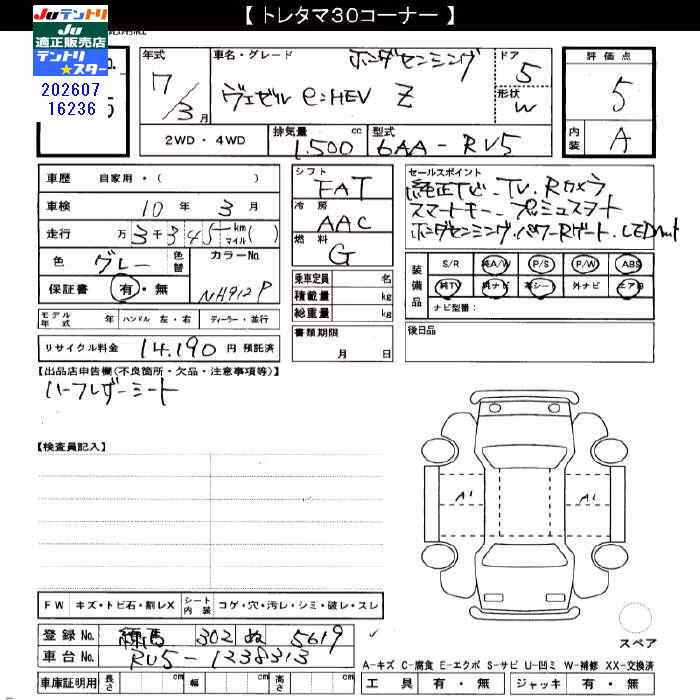 【 トレタマ30コーナー 】
Juテントリ
JU
適正販売店
テントリ
★スター
202607
16236
年式
7/3月
車名・グレード
ホンダセンシング
ヴェゼル e:HEV Z
ドア
5
形状
W
評価点
5
内装
A
2WD・4WD
排気量
1.500 cc
型式
6AA-RV5
車歴 自家用・( )
車検 10年 3月
走行 3万3千345 km マイル( )
色 グレー 色替
カラーNo.
NH912P
保証書 有・無
シフト
FAT
冷房
AAC
燃料
G
乗車定員 名
積載量 kg
総重量 kg
セールスポイント
純正ナビ.TV.Rカメラ
スマートキー.プッシュスタート
ホンダセンシング.パワーRゲート.LED
装備品
S/R 純A/W P/S P/W ABS
純TV 純ナビ 革シート 外ナビ エアB
ナビ型番:
モデル年式 年 ハンドル 左・右 ディーラー・並行
リサイクル料金 14.190 円 預託済
書類期限
月 日
後日品
【出品店申告欄(不良箇所・欠品・注意事項等)】
ハーフレザーシート
【検査員記入】
A1
A1
FW キズ・トビ石・割レX シート内装 コゲ・穴・汚レ・シミ・破レ・スレ
登録No. 練馬 302 ぬ 5619
車台No. RV5-1238313
スペア
A-キズ C-腐食 E-エクボ S-サビ U-凹ミ W-補修 XX-交換済
車庫証明用 長さ cm 幅 cm 高さ cm
工具 有・無 ジャッキ 有・無